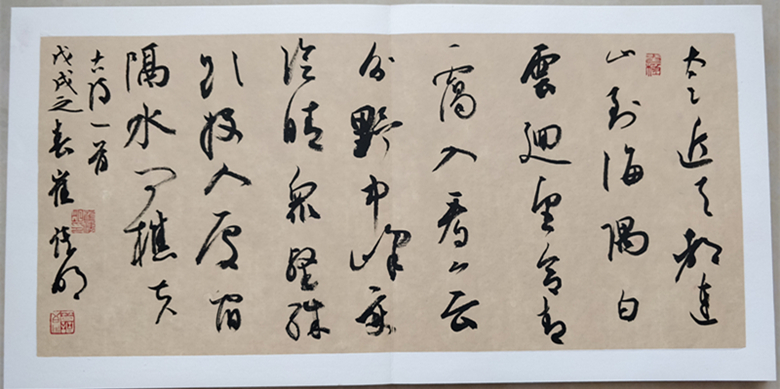 太乙近天都連
山到海隅白
雲迴望合青
靄入看無
分野中峰變
陰晴眾壑殊
欲投人處宿
隔水問樵夫
古诗一首
戊戌之春崔明